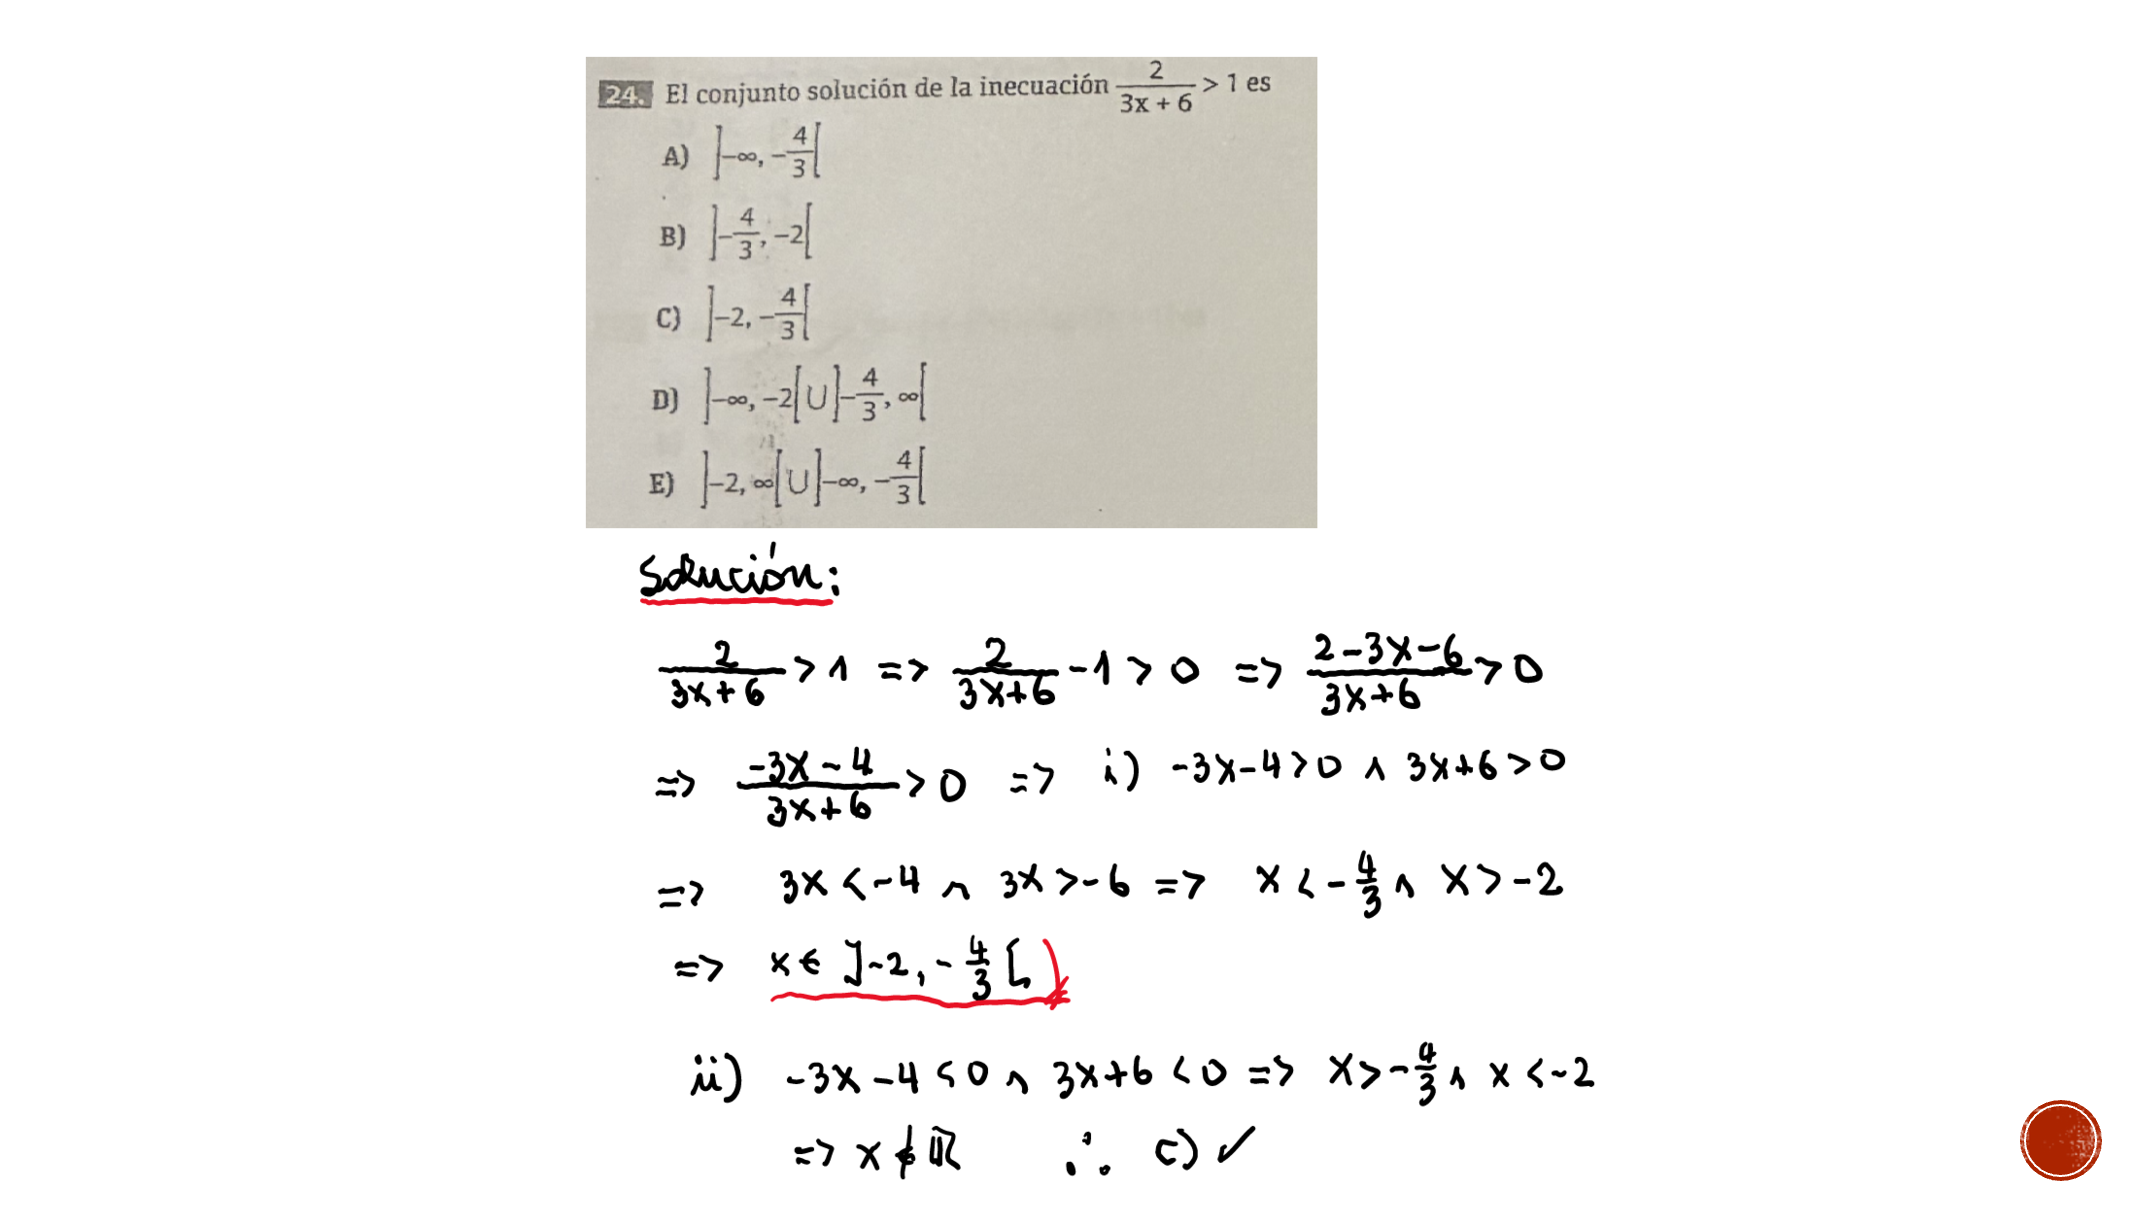 24. El conjunto solución de la inecuación 2/(3x + 6) > 1 es
A) ]−∞, −4/3[
B) ]−4/3, −2[
C) ]−2, −4/3[
D) ]−∞, −2[ ∪ ]−4/3, ∞[
E) ]−2, ∞[ ∪ ]−∞, −4/3[
Solución:
2/(3x+6) > 1 => 2/(3x+6) − 1 > 0 => (2−3x−6)/(3x+6) > 0
=> (−3x−4)/(3x+6) > 0 => i) −3x−4>0 ∧ 3x+6>0
=> 3x < −4 ∧ 3x > −6 => x < −4/3 ∧ x > −2
=> x ∈ ]−2, −4/3[
ii) −3x−4<0 ∧ 3x+6<0 => x > −4/3 ∧ x < −2
=> x ∉ ℝ ∴ C) ✓